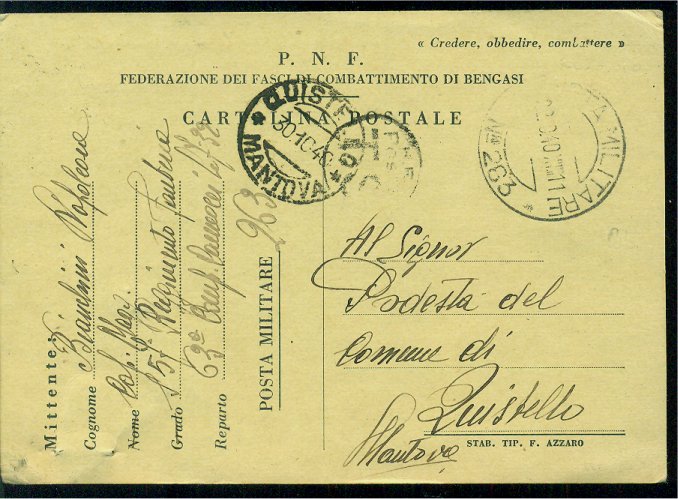 « Credere, obbedire, combattere »
P. N. F.
FEDERAZIONE DEI FASCI DI COMBATTIMENTO DI BENGASI
CARTOLINA POSTALE
QUISTELLO
30·10·40
* MANTOVA *
MILITARE
Nº 263
Mittente:
Cognome Bianchini Napoleone
Nome
Grado 157º Reggimento Fanteria
Reparto 63ª
POSTA MILITARE 263
Al Signor
Podestà del
Comune di
Quistello
Mantova
STAB. TIP. F. AZZARO